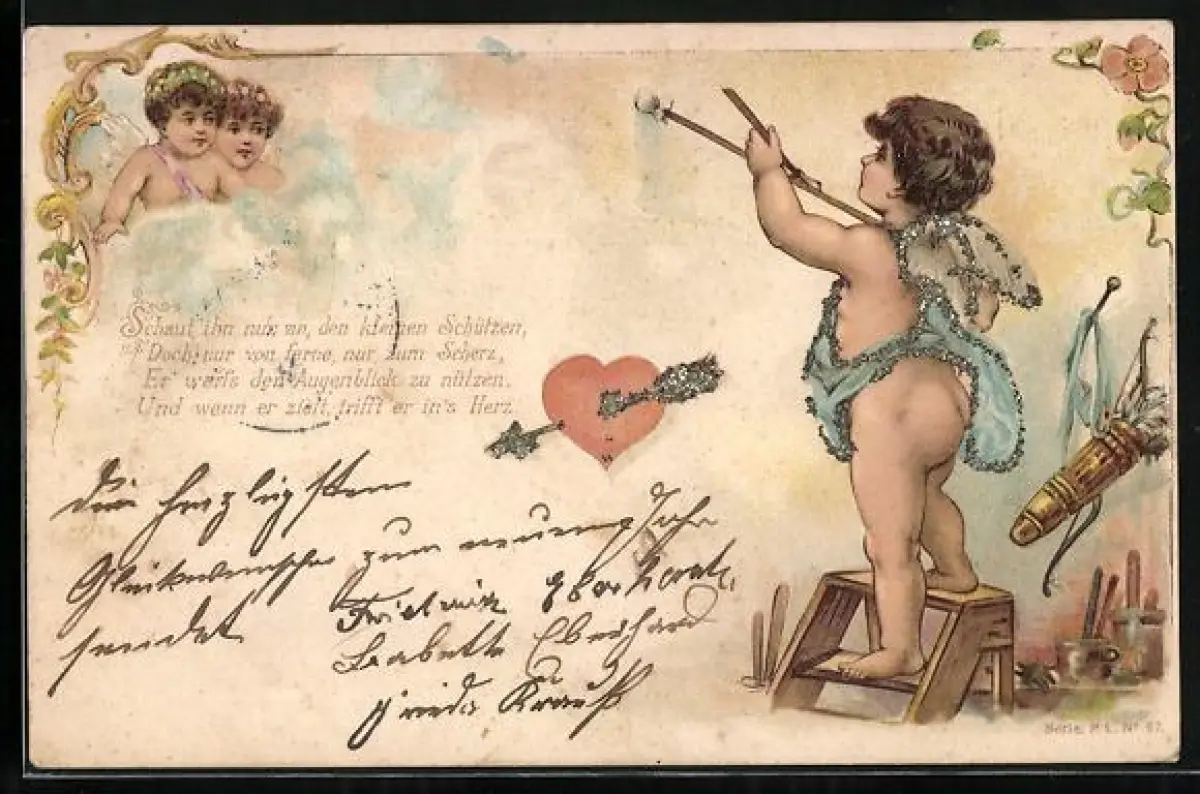 Schaut ihn nur an, den kleinen Schützen,
Doch nur von ferne, nur zum Scherz,
Er weiß den Augenblick zu nützen,
Und wenn er zielt, trifft er in's Herz.
Die herzligsten
Glückwünsche zum neuen Jahr
sendet
Eberhardt
Babette Eberhard
Frieda Krauß
Serie P. L. Nº 67.